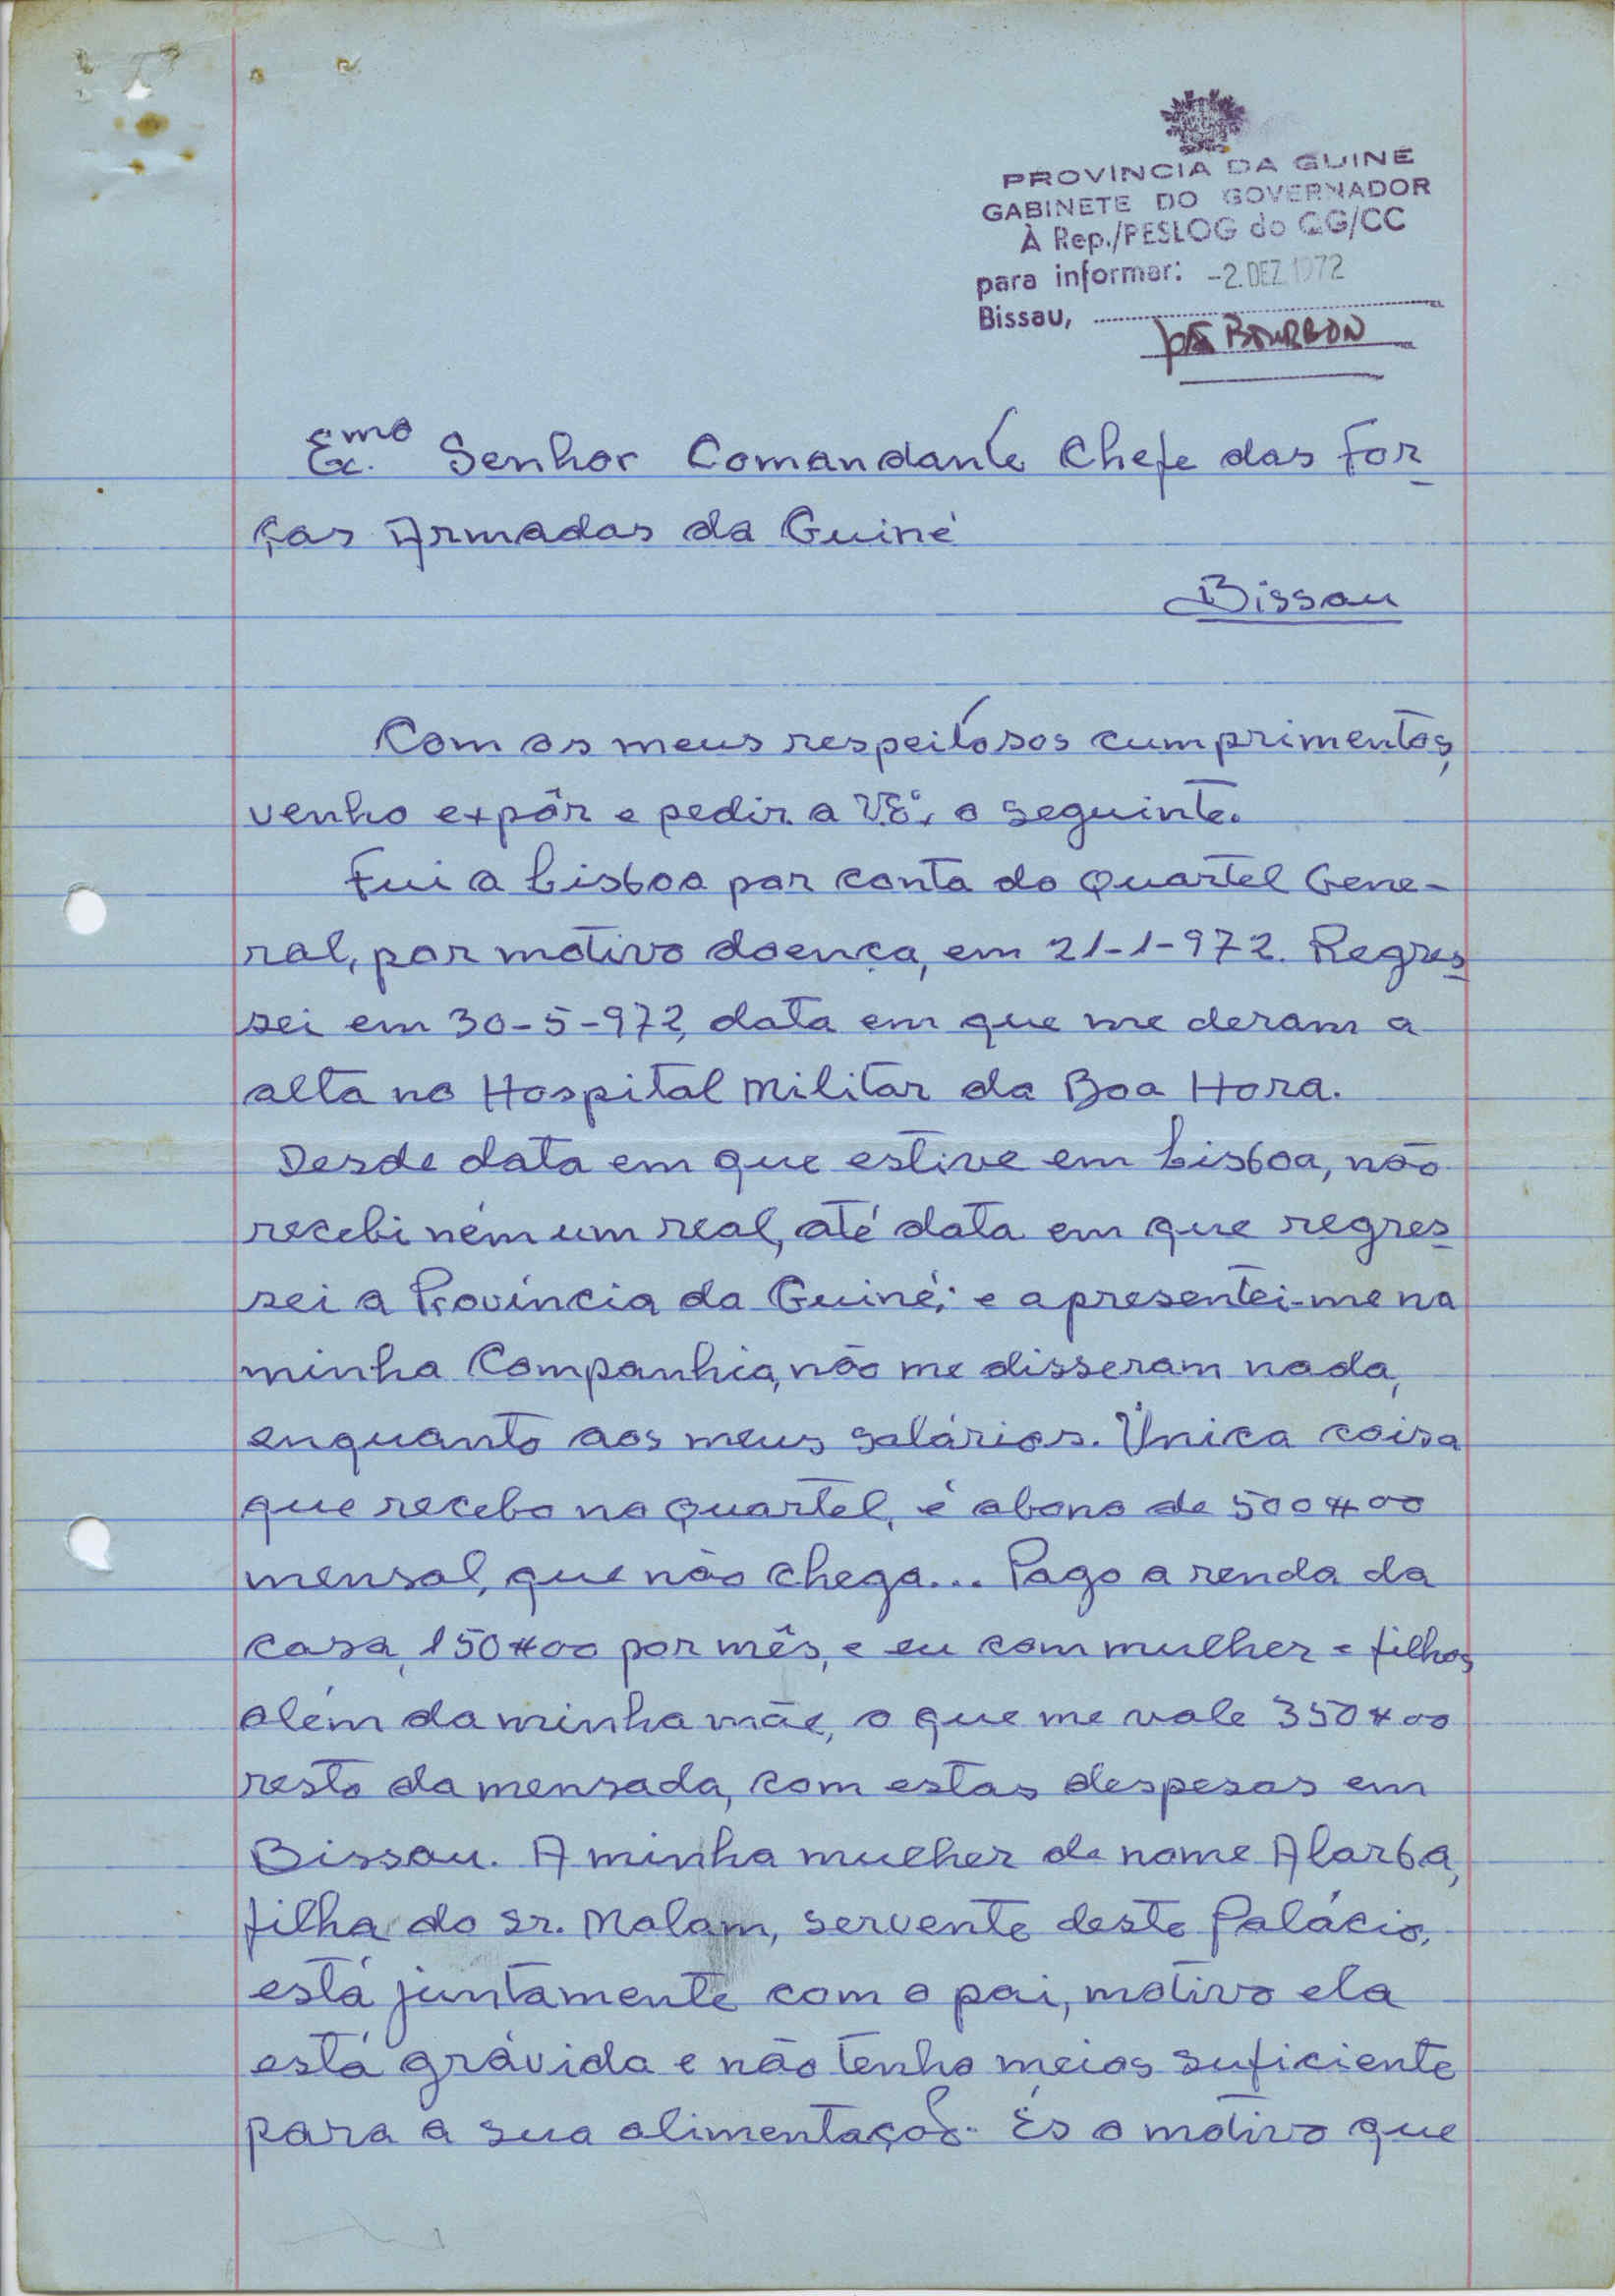 PROVÍNCIA DA GUINÉ
GABINETE DO GOVERNADOR
À Rep./PESLOG do QG/CC
para informar: -2. DEZ 1972
Bissau,
BOURBON
Ex.mo Senhor Comandante Chefe das For-
ças Armadas da Guiné
Bissau
Com os meus respeitosos cumprimentos,
venho expôr e pedir a V.Ex.ª, o seguinte.
Fui a Lisboa por conta do Quartel Gene-
ral, por motivo doença, em 21-1-972. Regres-
sei em 30-5-972, data em que me deram a
alta no Hospital Militar da Boa Hora.
Desde data em que estive em Lisboa, não
recebi ném um real, até data em que regres-
sei a Província da Guiné; e apresentei-me na
minha Companhia, não me disseram nada,
enquanto aos meus salários. Única coisa
que recebo no Quartel, é abono de 500$00
mensal, que não chega... Pago a renda da
casa, 150$00 por mês, e eu com mulher e filhos,
além da minha mãe, o que me vale 350$00
resto da mensada, com estas despesas em
Bissau. A minha mulher de nome Alarba,
filha do Sr. Malam, servente deste Palácio,
está juntamente com o pai, motivo ela
está grávida e não tenho meios suficiente
para a sua alimentação. És o motivo que